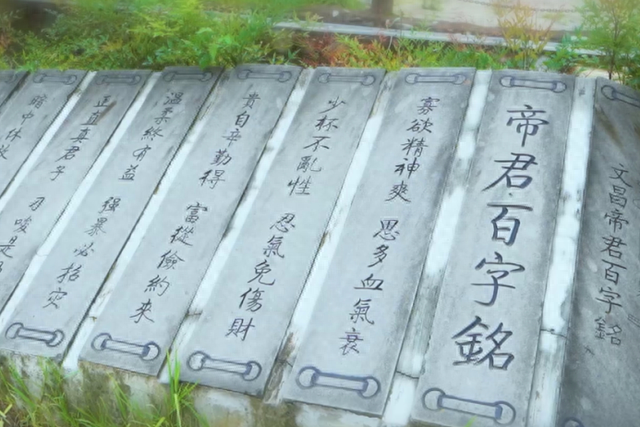 文昌帝君百字銘
帝君百字銘
寡欲精神爽 思多血氣衰
少杯不亂性 忍氣免傷財
貴自辛勤得 富從儉約來
溫柔終有益 強暴必招灾
正直真君子 刁唆是
暗中休放